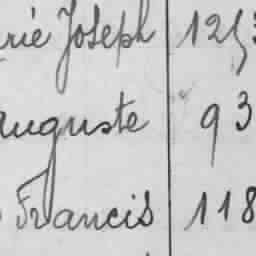 rie Joseph 1253
auguste 93
Francis 118